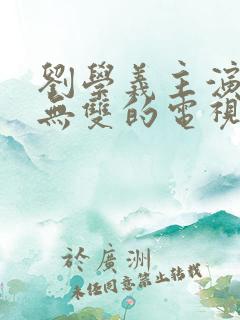 劉學義主演
無雙的電視
於廣洲
未任同意禁止转载